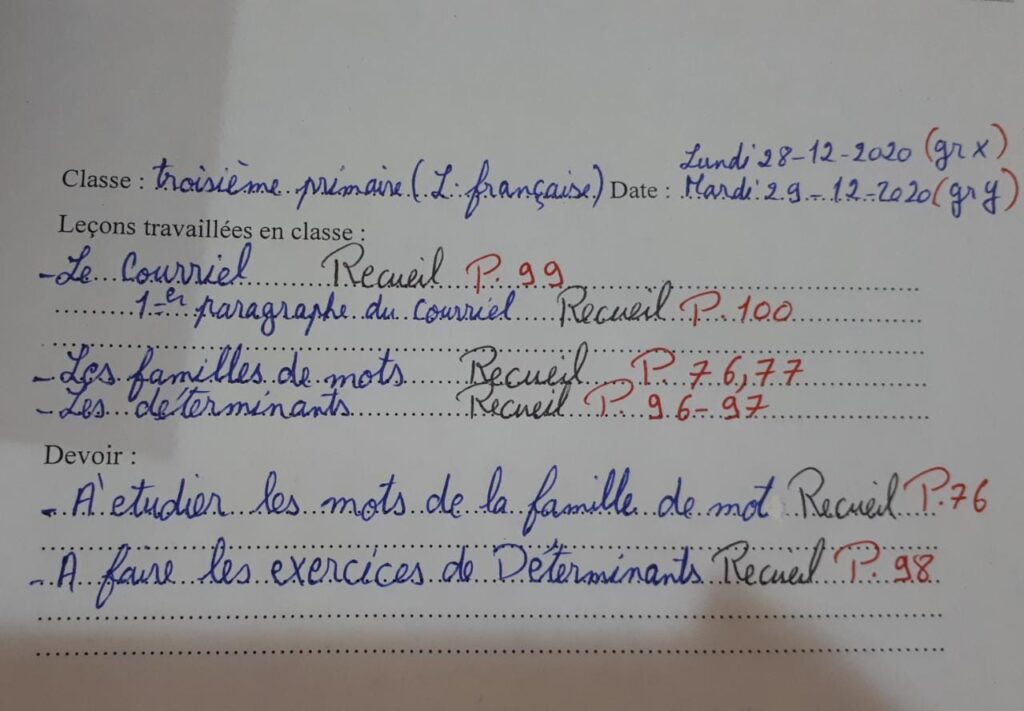 Lundi 28-12-2020 (gr x)
Classe : troisième primaire (L. française) Date : Mardi 29-12-2020 (gr y)
Leçons travaillées en classe :
- Le Courriel Recueil P. 99
1-er paragraphe du courriel Recueil P. 100
- Les familles de mots Recueil P. 76,77
- Les déterminants Recueil P. 96-97
Devoir :
- A étudier les mots de la famille de mot Recueil P.76
- A faire les exercices de Déterminants Recueil P. 98